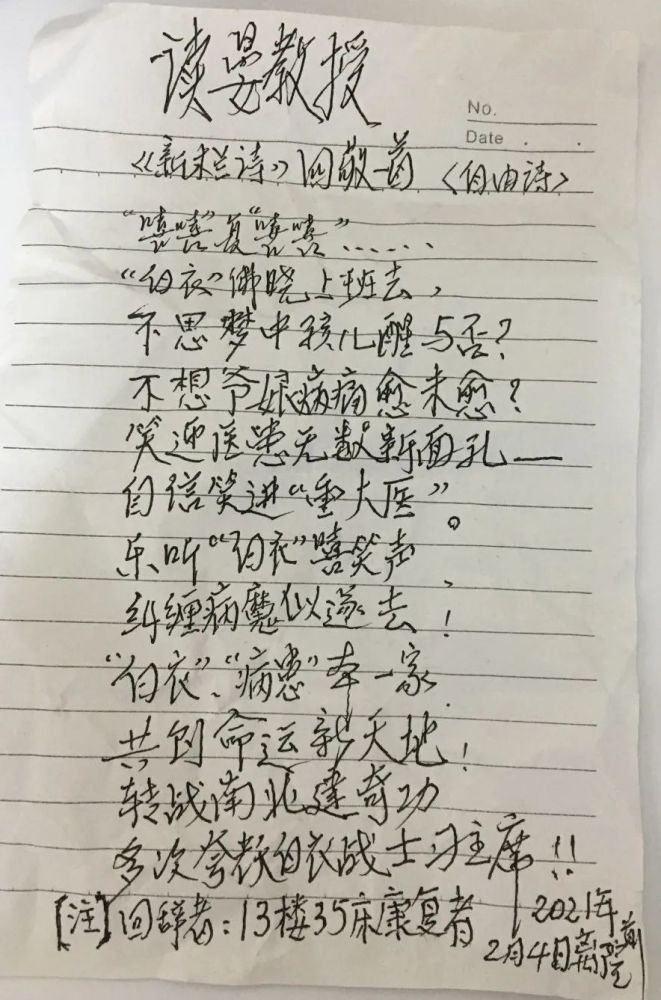 读晏教授
No.
Date . .
《新木兰诗》回敬一首 〈自由诗〉
“嘻嘻”复“嘻嘻”……
“白衣”佛晓上班去,
不思梦中孩儿醒与否?
不想爷娘病痛愈未愈?
笑迎医患无数新面孔—
自信笑进“重大医”。
乐听“白衣”嘻笑声、
纠缠病魔似遂去!
“白衣”、“病患”本一家
共创命运新天地!
转战南北建奇功
多次夸赞白衣战士习主席!!
[注]回辞者:13楼35床康复者
2021年
2月4日离院前